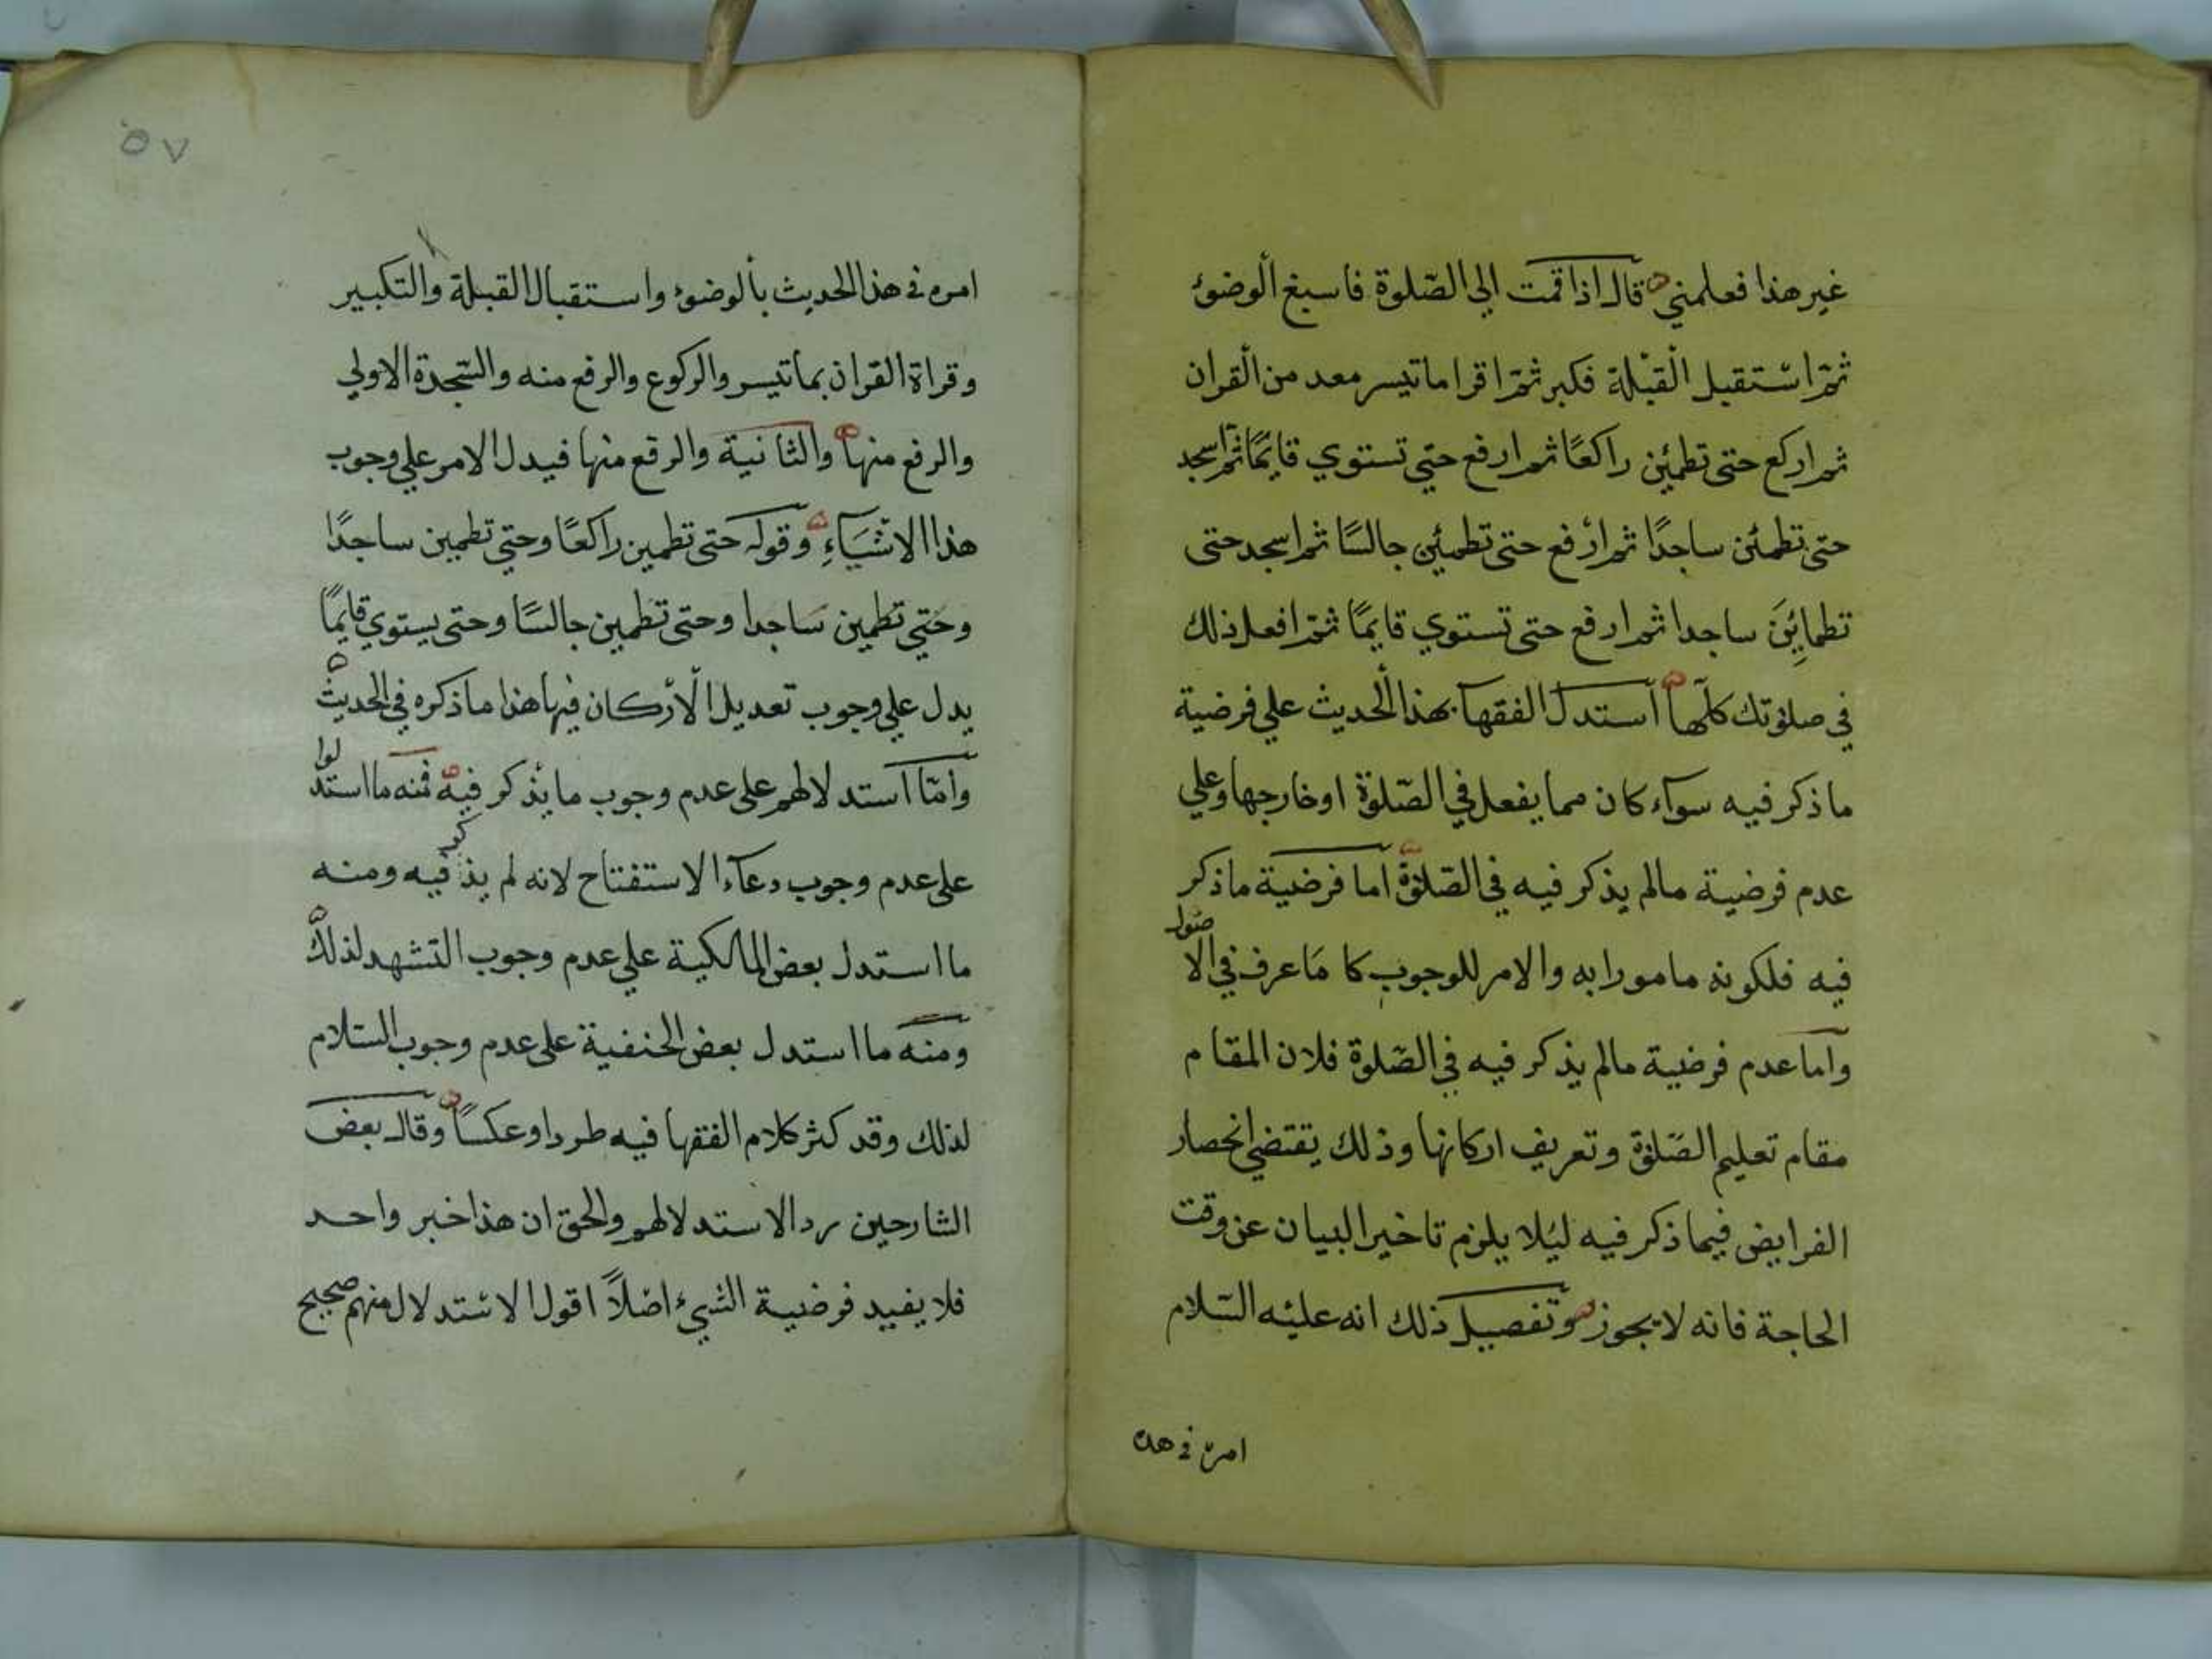 غير هذا فعلمني قال اذا قمت الي الصّلوة فاسبغ الوضوء
ثمّ اسْتقبل الْقبْلة فكبر ثمّ اقرا ما تيسر معد من الْقران
ثم اركع حتى تطمئن راكعًا ثم ارفع حتي تستوي قايمًا ثم اسجد
حتى تطمئن ساجدًا ثم ارْفع حتى تطمئن جالسًا ثم اسجد حتى
تطمائِنَ ساجدا ثم ارفع حتى تستوي قايمًا ثمّ افعل ذلك
في صلوتك كلّها استدل الفقهآ بهذا الْحديث علي فرضية
ما ذكر فيه سوآء كان مما يفعل في الصّلوة او خارجها وعلي
عدم فرضية مالم يذكر فيه في الصّلوة اما فرضية ما ذكر
فيه فلكونه مامورا به والامر للوجوب كا مَا عرف في الاصول
واما عدم فرضية مالم يذكر فيه في الصّلوة فلان المقام
مقام تعليم الصّلوة وتعريف اركانها وذلك يقتضي انحصار
الفرايض فيما ذكر فيه ليُلا يلزم تاخير البيان عن وقت
الحاجة فانه لا يجوز وتفصيل ذلك انه عليْه السّلام
امره في هذا
٥٧
امره في هذا الحديث بألوضوء واستقبال القبلة والتكبير
وقراة القران بما تيسر والركوع والرفع منه والسّجدة الاولي
والرفع منها والثانية والرفع منها فيدل الامر علي وجوب
هذا الاشْيَآءِ وقوله حتى تطمين راكعًا وحتي تطمين ساجدًا
وحَتي تطمين سَاجدا وحتى تطمين جالسًا وحتى يستوي قايمًا
يدل علي وجوب تعديل الْارْكان فيها هذا ما ذكره في الحديث
وامّا استدلالهم على عدم وجوب ما يذكر فيه فمنه ما استدلوا
على عدم وجوب دعآء الاستفتاح لانه لم يذكر فيه ومنه
ما استدل بعض المالكية علي عدم وجوب التشهد لذلك
ومنه ما استدل بعض الحنفية على عدم وجوب السّلام
لذلك وقد كثر كلام الفقها فيه طردا وعكسًا وقال بعض
الشارحين رد الاستدلالهم والحق ان هذا خبر واحد
فلا يفيد فرضية الشيء اصْلاً اقول الاسْتدلال منهم صحيح